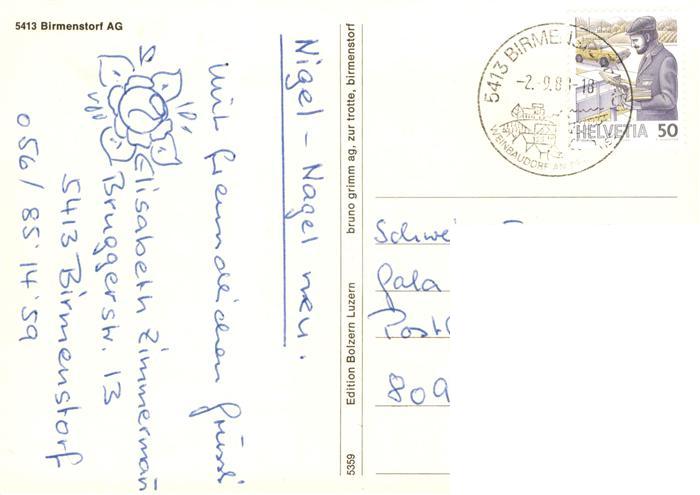 5413 Birmenstorf AG
Nigel – Nagel neu.
Mit freundlichen Grüssli
Elisabeth Zimmermann
Bruggerstr. 13
5413 Birmenstorf
056 / 85'14'59
5359 Edition Bolzern Luzern bruno grimm ag, zur trotte, birmenstorf
5413 BIRMENS
-2.-9.8 -18
WEINBAUDORF AN
HELVETIA 50
Schwei
Pala
Post
809